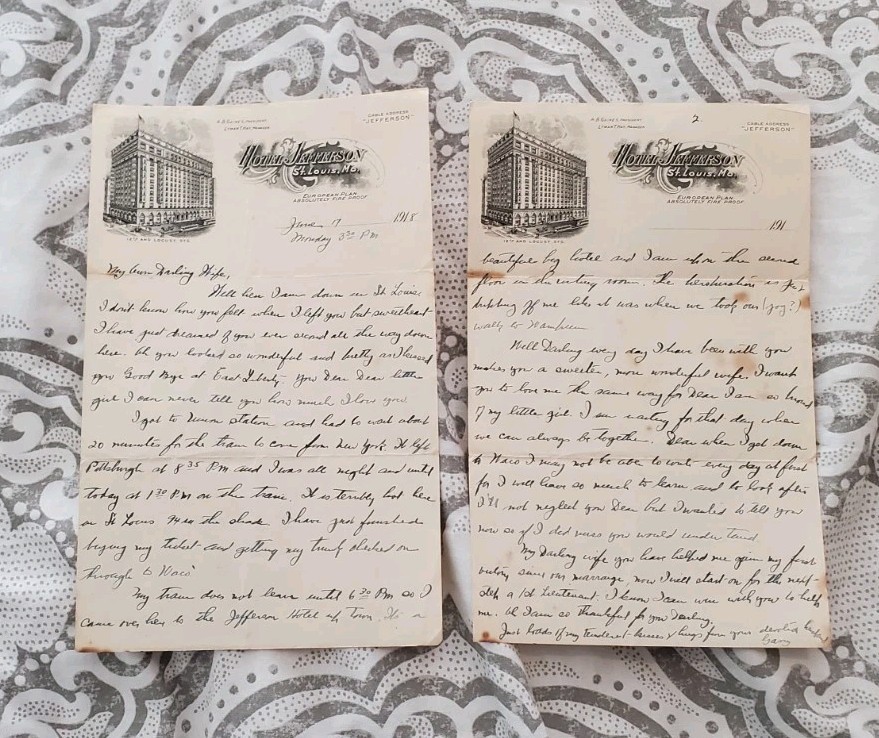 CABLE ADDRESS
"JEFFERSON"
LYMAN T. HAY, MANAGER
HOTEL JEFFERSON
ST. LOUIS, MO.
EUROPEAN PLAN
ABSOLUTELY FIRE PROOF
12TH AND LOCUST STS.
June 17 1918
Monday 3 30 PM
My Own Darling Wife,
Well here I am down in St Louis.
I don't know how you felt when I left you but sweetheart
I have just dreamed of you ever second all the way down
here. Oh you looked so wonderful and pretty as I kissed
you Good Bye at East Liberty. You Dear Dear little
girl I can never tell you how much I love you
I got to Union station and had to wait about
20 minutes for the train to come from New York. It left
Pittsburgh at 8 35 PM and I was all night and until
today at 1 30 PM on the train. It is terribly hot here
in St Louis in the shade. I have just finished
buying my ticket and getting my trunk checked on
through to Waco
My train does not leave until 6 30 PM so I
came over here to the Jefferson Hotel up town. It's a
2.
CABLE ADDRESS
"JEFFERSON"
LYMAN T. HAY, MANAGER
HOTEL JEFFERSON
ST. LOUIS, MO.
EUROPEAN PLAN
ABSOLUTELY FIRE PROOF
12TH AND LOCUST STS.
191
beautiful big hotel and I am upon the second
floor in the writing room. The perspiration is just
dripping off me like it was when we took our (joy?)
walk to
Well Darling every day I have been with you
makes you a sweeter, more wonderful wife. I want
you to love me the same way for Dear I am so proud
of my little girl. I am waiting for that day when
we can always be together. Dear when I get down
to Waco I may not be able to write every day at first
for I will have so much to learn and to look after
I'll not neglect you Dear but I wanted to tell you
now so if I did miss you would under stand.
My Darling wife you have helped me gain my first
victory since our marriage, now I will start on for the next
step a 1st Lieutenant. I know I can win with you to help
me. Oh I am so thankful for you Darling.
Just loads of my tenderest kisses & hugs from your devoted